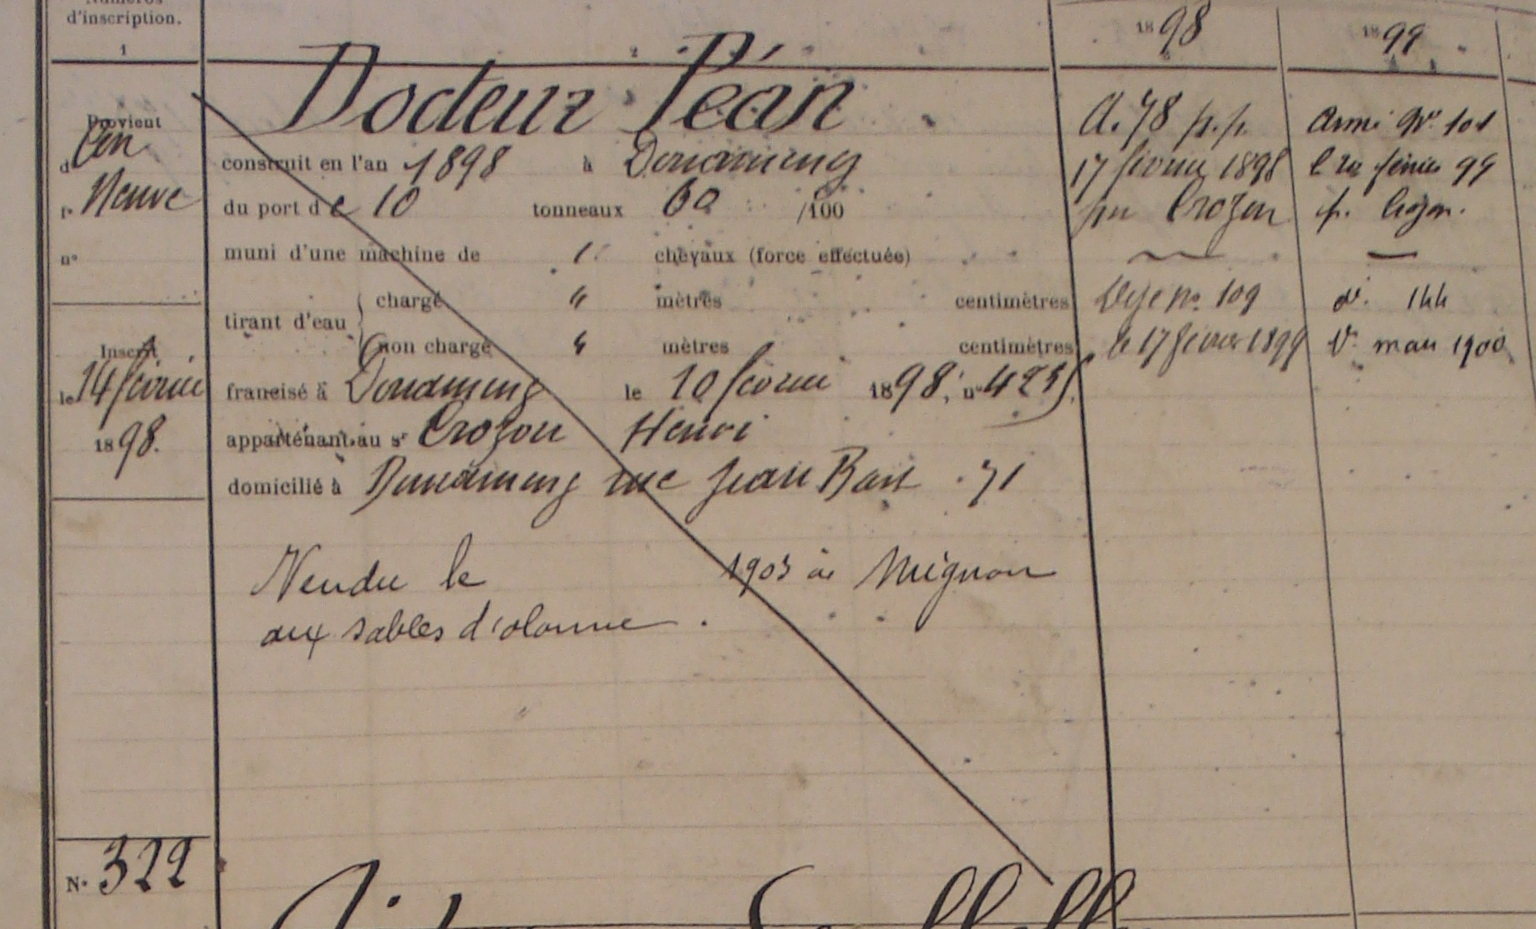 Numéros
d'inscription.
1
2
1898
1899
Docteur Péan
Provient
d
Con
Neuve
n°
construit en l'an 1898 à Douarnenez
du port de 10 tonneaux 60 /100
muni d'une machine de " chevaux (force effectuée)
tirant d'eau
chargé " mètres centimètres
non chargé " mètres centimètres
Inscrit
le 14 février
1898.
francisé à Douarnenez le 10 février 1898, n°
appartenant au sr Crozon Henri
domicilié à Douarnenez rue Jean Bart 71
Vendu le 1903 à Mignon
aux sables d'olonne.
A. 78 p.p.
17 février 1898
Crozon
Dése n° 109
le 17 février 1899
Armé 101
février 99
p. Crozon.
d. 144
mars 1900
N° 322